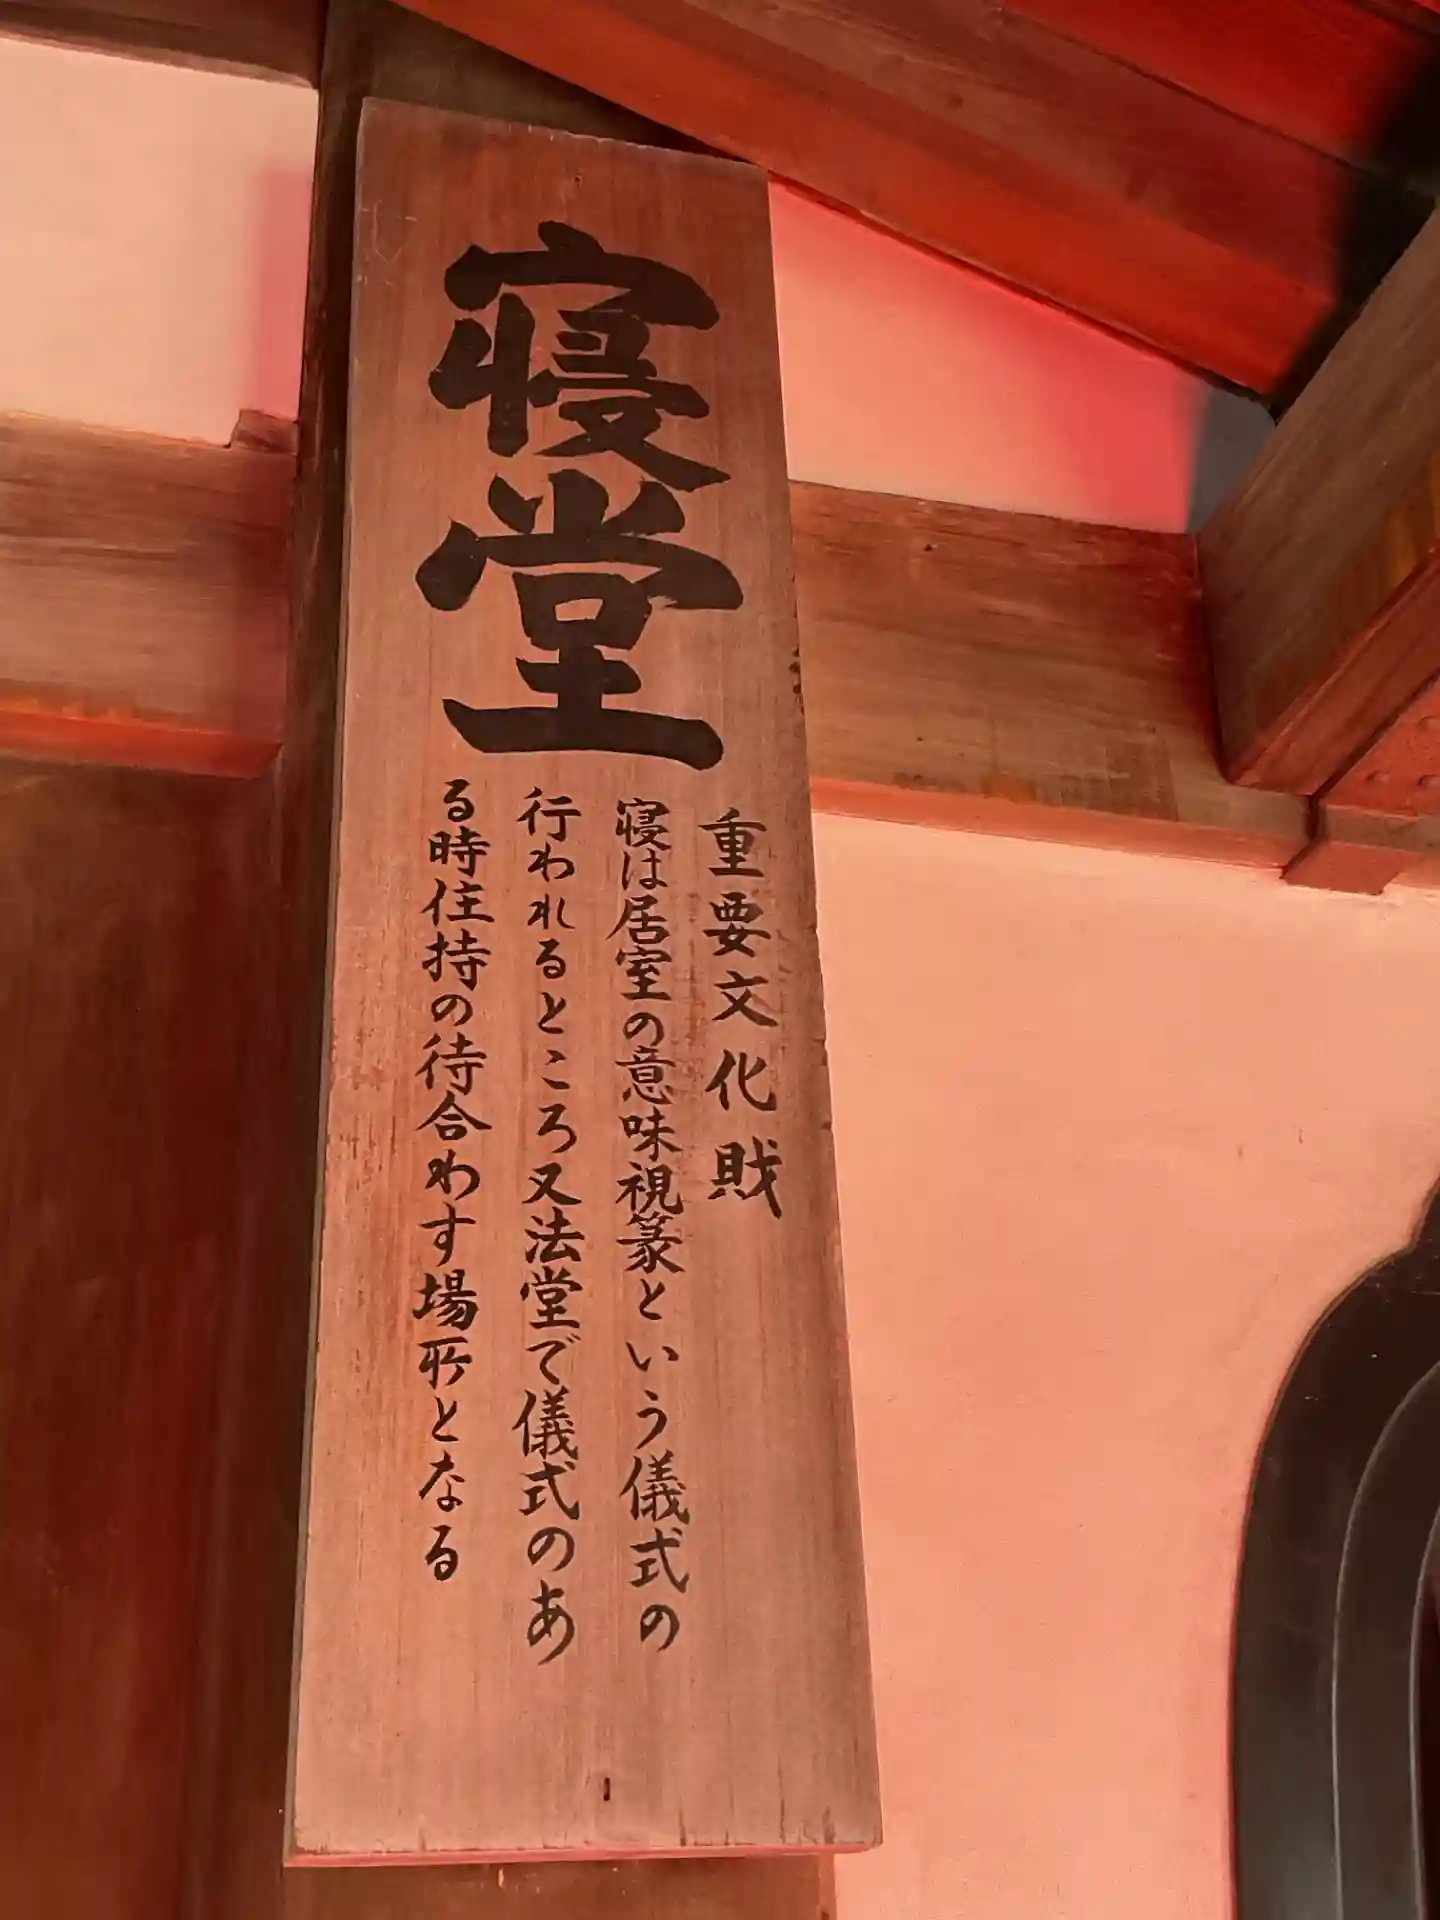 寝堂
重要文化財
寝は居室の意味視篆という儀式の
行われるところ又法堂で儀式のあ
る時住持の待合わす場所となる